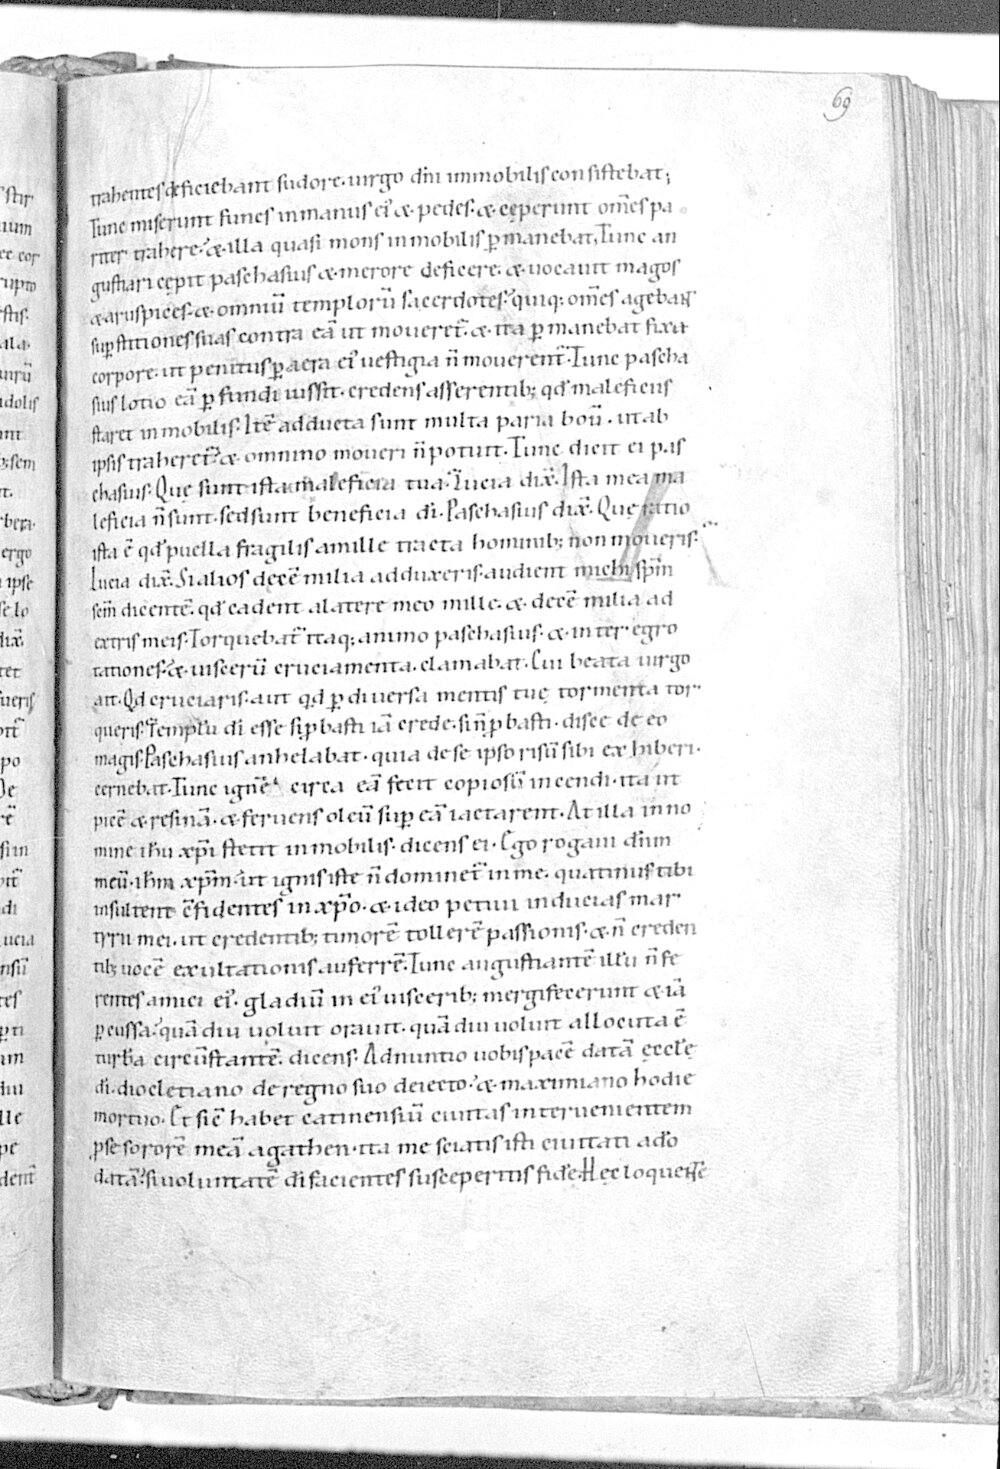 69
trahentes deficiebant sudore. uirgo dn̄i immobilis consistebat;
Tunc miserunt funes in manus ei' & pedes. & cęperunt om̄s pa
riter trahere. & illa quasi mons inmobilis ꝑmanebat. Tunc an
gustiari cępit paschasius & merore deficere. & uocauit magos
& aruspices. & omniū templorū sacerdotes. quiq; om̄s agebant
suꝑstitiones suas contra eā ut moueret̄. & ita ꝑmanebat fixa
corpore. ut penitus ꝑ aera ei' uestigia n̄ mouerent̄. Tunc pascha
sius lotio eā ꝑfundi iussit. credens asserentib; qd̄ maleficiis
staret inmobilis. Itē adducta sunt multa paria boū. ut ab
ipsis traheret̄. & omnino moueri n̄ potuit. Tunc dicit ei pas
chasius. Quę sunt ista maleficia tua. Lucia dix̄. Ista mea ma
leficia n̄ sunt. sed sunt beneficia dī. Paschasius dix̄. Quę ratio
ista ē qd̄ puella fragilis a mille tracta hominib; non moueris.
Lucia dix̄. Si alios decē milia adduxeris. audient michi sp̄m
sc̄m dicentē. qd̄ cadent a latere meo mille. & decē milia ad
extris meis. Torquebat̄ itaq; animo paschasius. & inter egro
tationes. & uiscerū cruciamenta. clamabat. Cui beata uirgo
ait. Qd̄ cruciaris. aut qd̄ ꝑ diuersa mentis tuę tormenta tor
queris. Templū dī esse si ꝓbasti iā crede. si n̄ ꝓbasti. disce de eo
magis. Paschasius anhelabat. quia de se ipso risū sibi exhiberi
cernebat. Tunc ignē circa eā fecit copiosū incendi. ita ut
picē & resinā. & feruens oleū suꝑ eā iactarent. At illa in no
mine ih̄u xp̄i stetit inmobilis. dicens ei. Ego rogaui dn̄m
meū. ih̄m xp̄m. ut ignis iste n̄ dominet̄ in me. quatinus tibi
insultent c̄fidentes in xp̄o. & ideo petiui inducias mar
tyrii mei. ut credentib; timorē tollerē passionis. & n̄ creden
tib; uocē exultationis auferrē. Tunc angustiantē illū n̄ fe
rentes amici ei'. gladiū in ei' uiscerib; mergi fecerunt & iā
ꝑcussa. quā diu uoluit orauit. quā diu uoluit allocuta ē
turbā circūstantē. dicens. Adnuntio uobis pacē datā ęccl̄ę
dī. diocletiano de regno suo deiecto. & maximiano hodie
mortuo. Et sic̄ habet catinensiū ciuitas interuenientem
p se sororē meā agathen. ita me sciatis isti ciuitati a dō
datā. si uoluntatē dī facientes susceperitis fidē. Hęc loquente